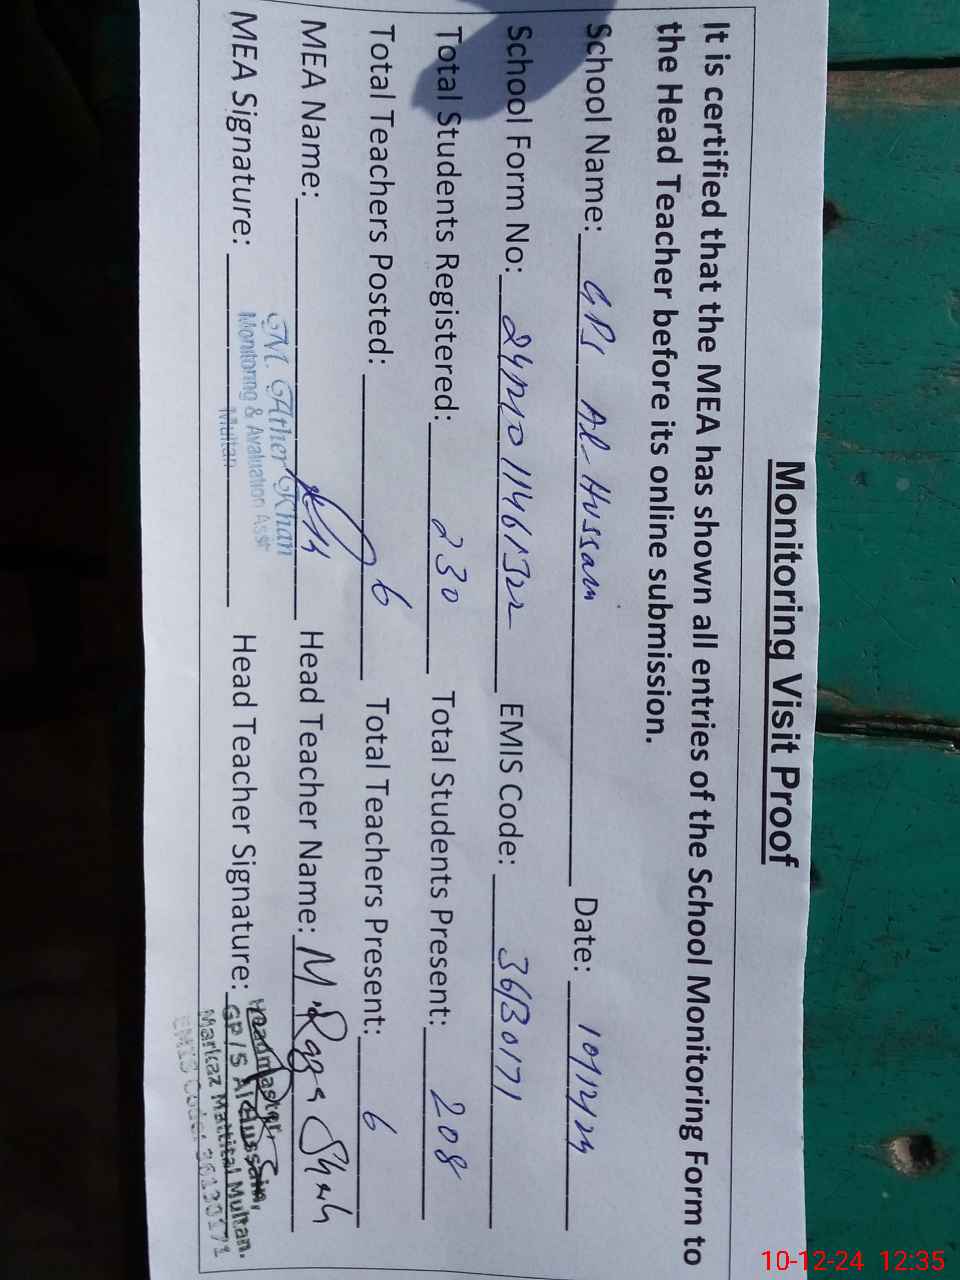 Monitoring Visit Proof
It is certified that the MEA has shown all entries of the School Monitoring Form to
the Head Teacher before its online submission.
School Name: GPS Al-Hussain Date: 10/12/24
School Form No: EMIS Code: 36130171
Total Students Registered: 230 Total Students Present: 208
Total Teachers Posted: 6 Total Teachers Present: 6
MEA Name: Head Teacher Name: M. Raza Shah
MEA Signature: Head Teacher Signature:
M. Ather Khan
Monitoring & Avaluation Asst
Multan
Headmaster,
GP/S Al Hussain,
Markaz Mattital Multan.
EMIS Code: 36130171
10-12-24 12:35